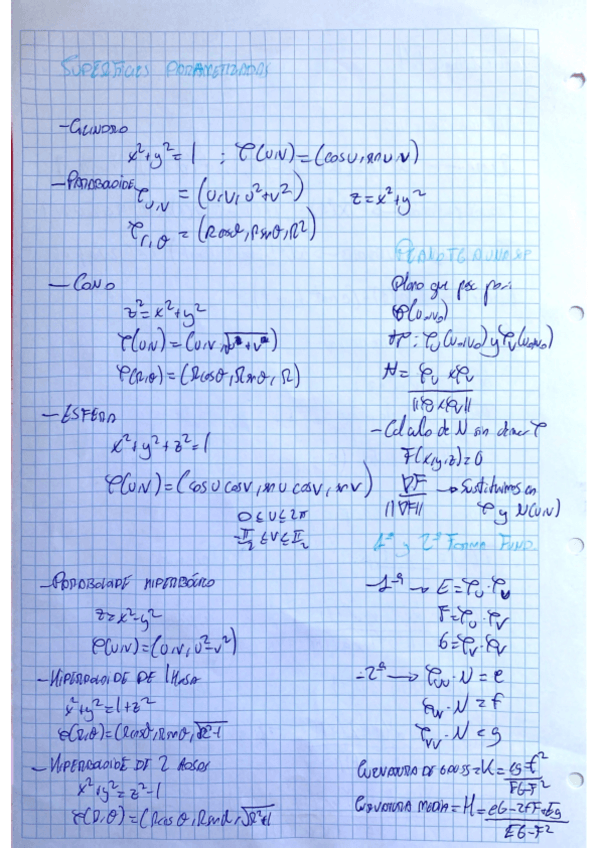 SUPERFICIES PARAMETRIZADAS
- CILINDRO
x²+y²=1 ; φ(u,v)=(cosu, senu, v)
- PARABOLOIDE φu,v = (u,v,u²+v²) z=x²+y²
φr,θ = (Rcosθ, Rsenθ, R²)
- CONO
z²=x²+y²
φ(u,v)=(u,v,√u²+v²)
φ(R,θ)=(Rcosθ, Rsenθ, R)
- ESFERA
x²+y²+z²=1
φ(u,v)=(cosu cosv, senu cosv, senv)
0≤u≤2π
-π/2≤v≤π/2
- PARABOLOIDE HIPERBÓLICO
z=x²-y²
φ(u,v)=(u,v,u²-v²)
- HIPERBOLOIDE DE 1 HOJA
x²+y²=1+z²
φ(R,θ)=(Rcosθ, Rsenθ, √R²-1
- HIPERBOLOIDE DE 2 HOJAS
x²+y²=z²-1
φ(R,θ)=(Rcosθ, Rsenθ, √R²+1
PLANO TG A UNA SP
Plano que pasa por:
φ(u0,v0)
φu(u0,v0) y φv(u0,v0)
N = φu x φv / ||φu x φv||
- Cálculo de N sin φ
F(x,y,z)=0
∇F / ||∇F|| → Sustituimos en
φ y N(u,v)
1ª y 2ª FORMA FUND.
- 1ª → E=φu·φu
F=φu·φv
G=φv·φv
- 2ª → φuu·N=e
φuv·N=f
φvv·N=g
CURVATURA DE GAUSS=K= eg-f² / EG-F²
CURVATURA MEDIA=H= eG-2fF+Eg / EG-F²